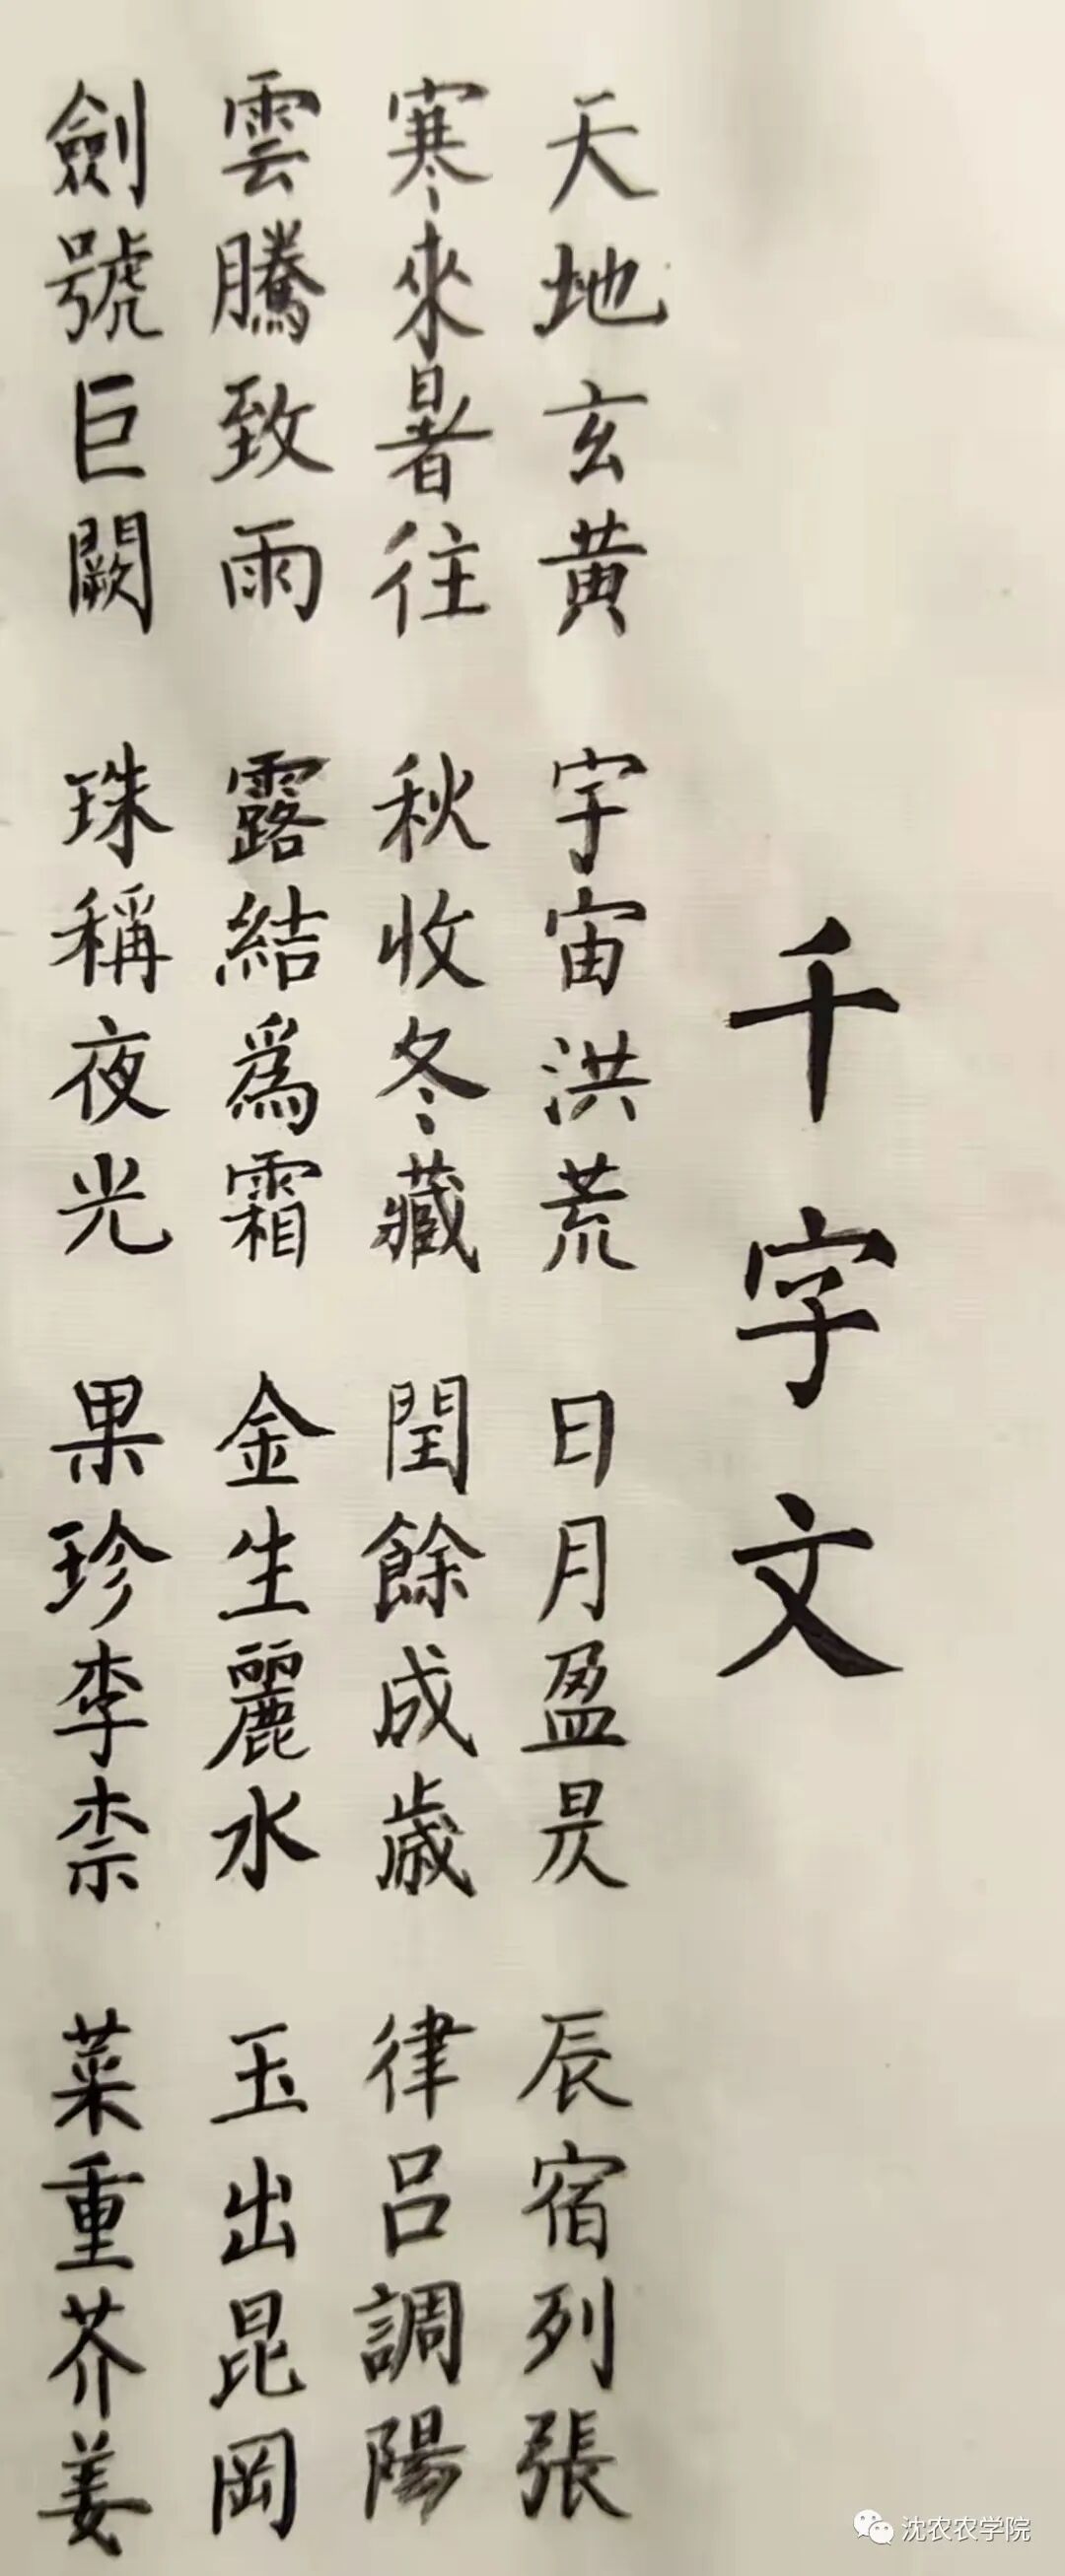 千字文
天地玄黄 宇宙洪荒 日月盈昃 辰宿列張
寒來暑往 秋收冬藏 閏餘成歲 律吕調陽
雲騰致雨 露結爲霜 金生麗水 玉出昆岡
劍號巨闕 珠稱夜光 果珍李柰 菜重芥姜
沈农农学院